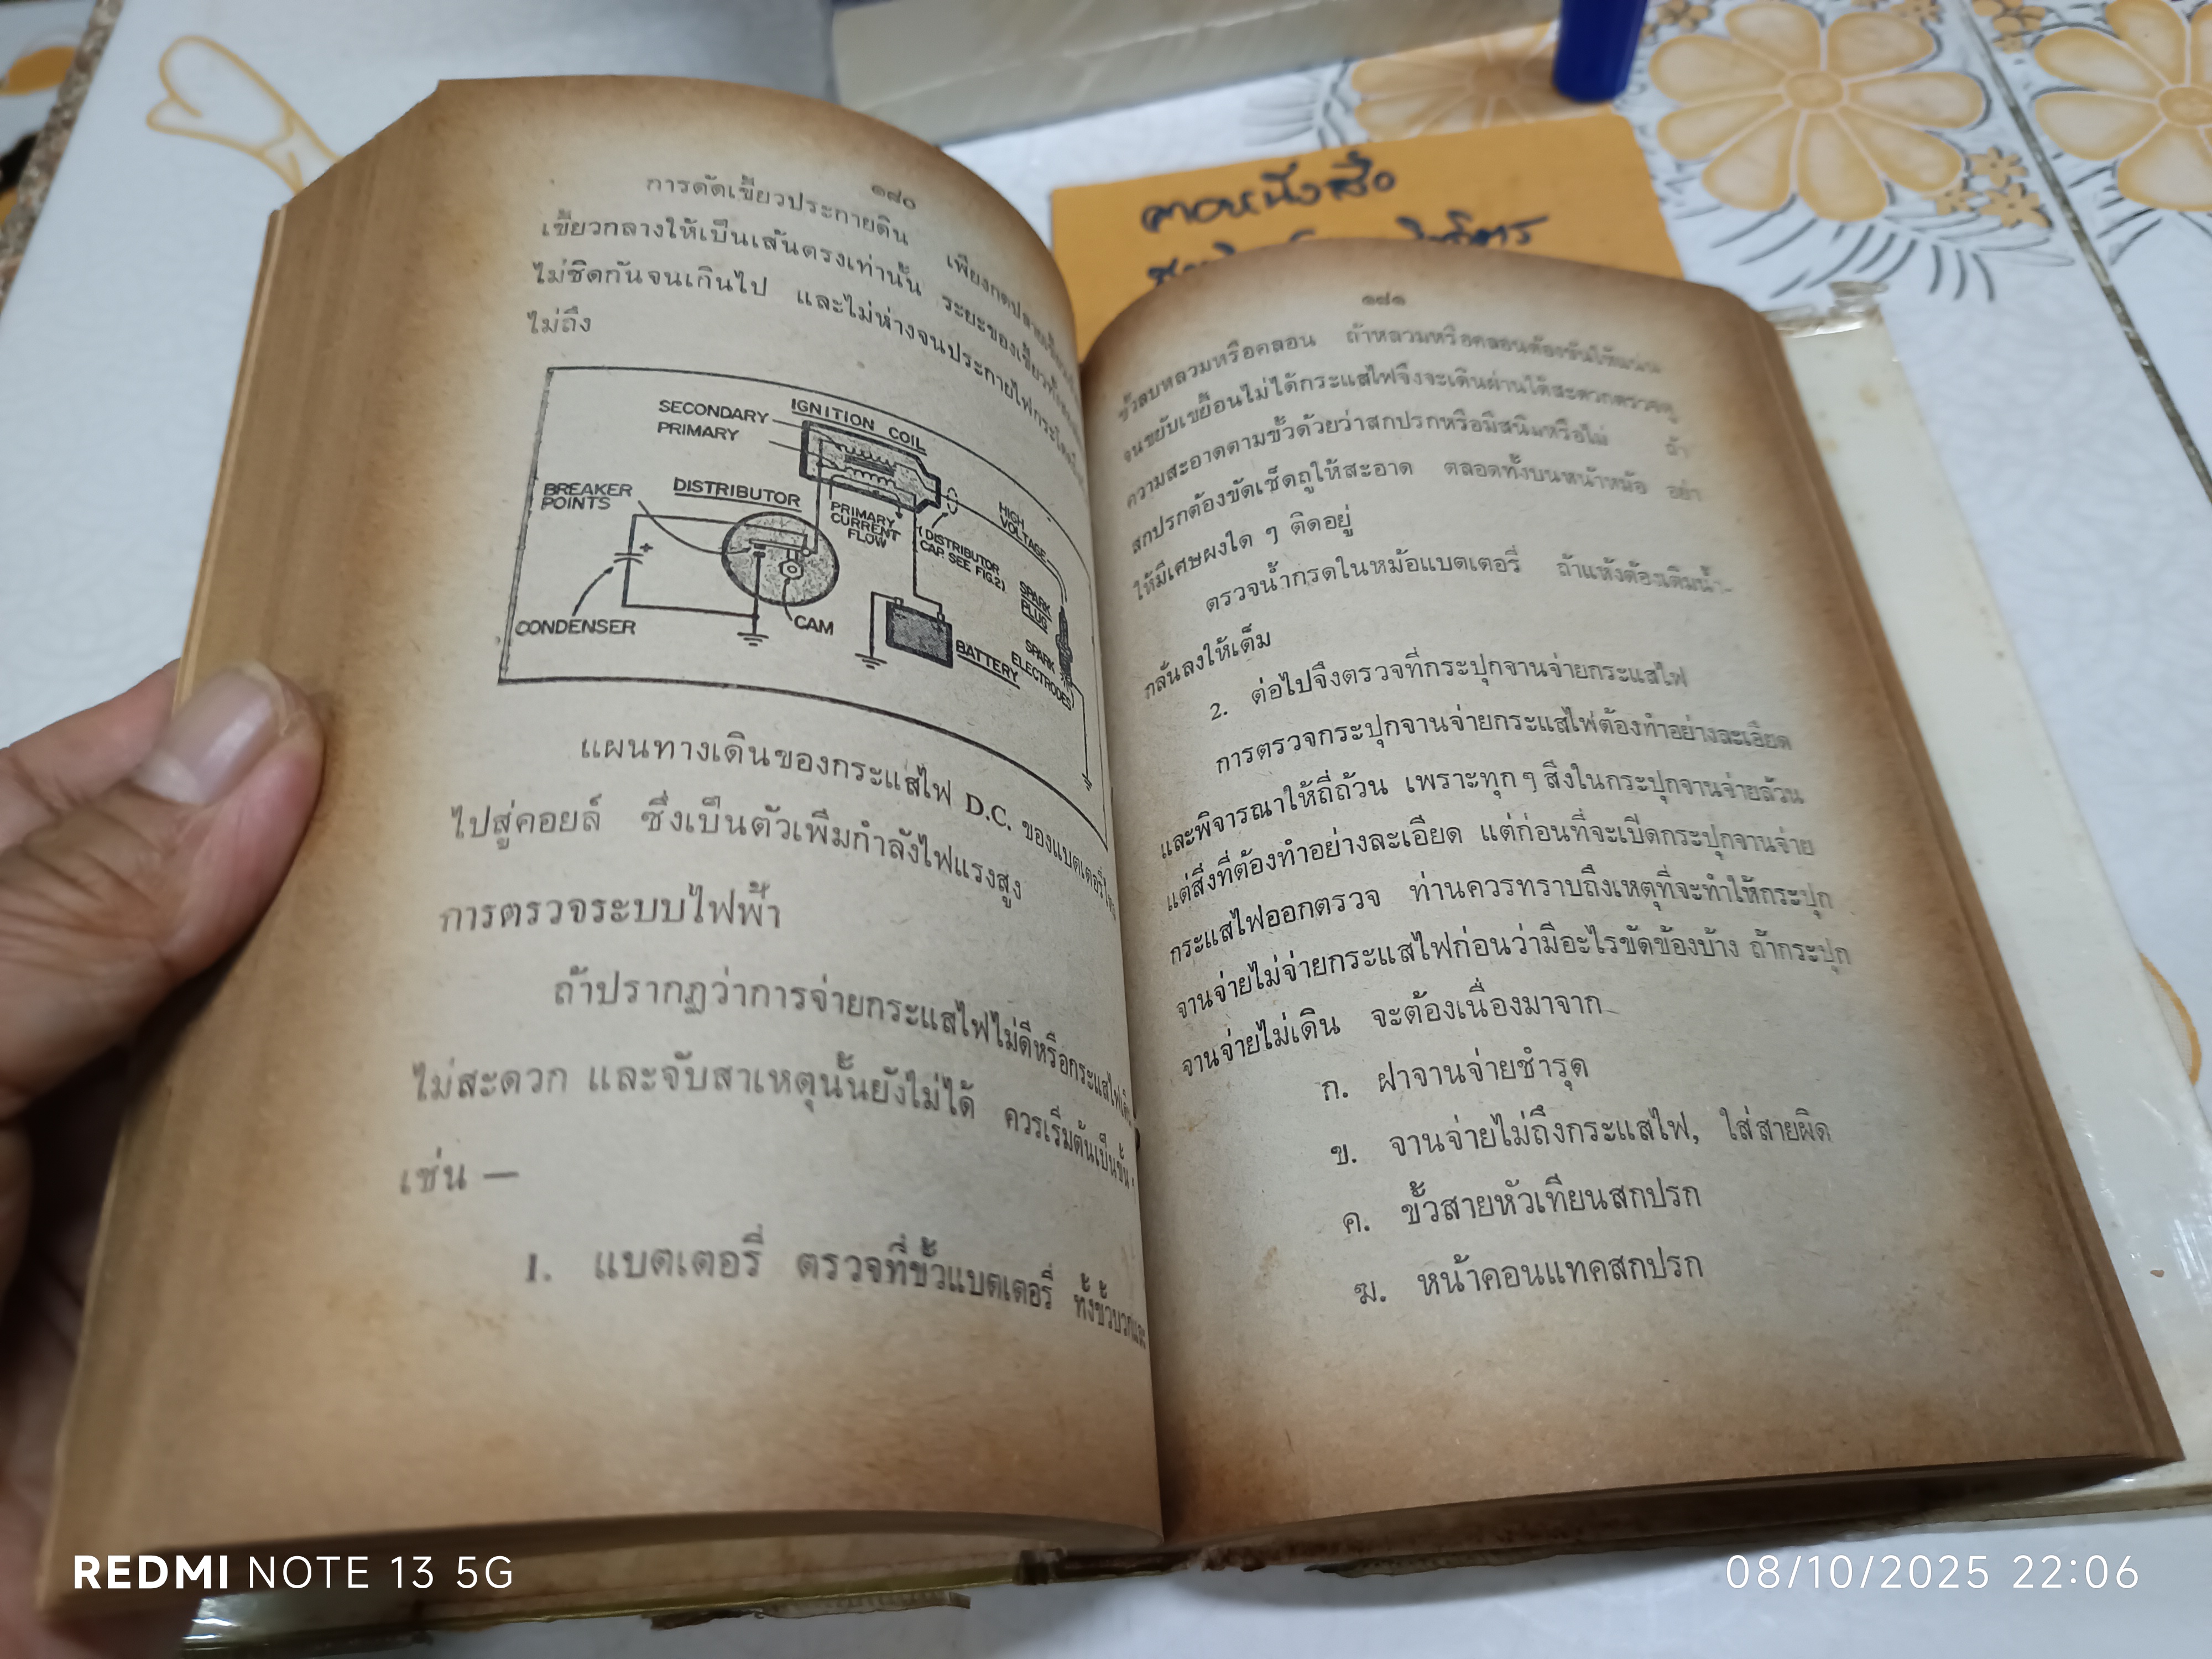 ๑๘๐
การดัดเขี้ยวประกายดิน เพียงกดปลาย
เขี้ยวกลางให้เป็นเส้นตรงเท่านั้น ระยะของเขี้ยวทั้งสอง
ไม่ชิดกันจนเกินไป และไม่ห่างจนประกายไฟกระโดด
ไม่ถึง
SECONDARY
PRIMARY
IGNITION COIL
BREAKER
POINTS
DISTRIBUTOR
PRIMARY
CURRENT
FLOW
(DISTRIBUTOR
CAP. SEE FIG.2)
HIGH
VOLTAGE
SPARK
PLUG
SPARK
ELECTRODES
CONDENSER
CAM
BATTERY
แผนทางเดินของกระแสไฟ D.C. ของแบตเตอรี่
ไปสู่คอยล์ ซึ่งเป็นตัวเพิ่มกำลังไฟแรงสูง
การตรวจระบบไฟฟ้า
ถ้าปรากฏว่าการจ่ายกระแสไฟไม่ดีหรือกระแสไฟเดิน
ไม่สะดวก และจับสาเหตุนั้นยังไม่ได้ ควรเริ่มต้นเป็นขั้น ๆ
เช่น —
1. แบตเตอรี่ ตรวจที่ขั้วแบตเตอรี่ ทั้งขั้วบวกและ
๑๘๑
ขั้วลบหลวมหรือคลอน ถ้าหลวมหรือคลอนต้องขันให้แน่น
จนขยับเขยื้อนไม่ได้กระแสไฟจึงจะเดินผ่านได้สะดวกตรวจดู
ความสะอาดตามขั้วด้วยว่าสกปรกหรือมีสนิมหรือไม่ ถ้า
สกปรกต้องขัดเช็ดถูให้สะอาด ตลอดทั้งบนหน้าหม้อ อย่า
ให้มีเศษผงใด ๆ ติดอยู่
ตรวจน้ำกรดในหม้อแบตเตอรี่ ถ้าแห้งต้องเติมน้ำ-
กลั่นลงให้เต็ม
2. ต่อไปจึงตรวจที่กระปุกจานจ่ายกระแสไฟ
การตรวจกระปุกจานจ่ายกระแสไฟต้องทำอย่างละเอียด
และพิจารณาให้ถี่ถ้วน เพราะทุก ๆ สิ่งในกระปุกจานจ่ายล้วน
แต่สิ่งที่ต้องทำอย่างละเอียด แต่ก่อนที่จะเปิดกระปุกจานจ่าย
กระแสไฟออกตรวจ ท่านควรทราบถึงเหตุที่จะทำให้กระปุก
จานจ่ายไม่จ่ายกระแสไฟก่อนว่ามีอะไรขัดข้องบ้าง ถ้ากระปุก
จานจ่ายไม่เดิน จะต้องเนื่องมาจาก
ก. ฝาจานจ่ายชำรุด
ข. จานจ่ายไม่ถึงกระแสไฟ, ใส่สายผิด
ค. ขั้วสายหัวเทียนสกปรก
ฆ. หน้าคอนแทคสกปรก
REDMI NOTE 13 5G
08/10/2025 22:06